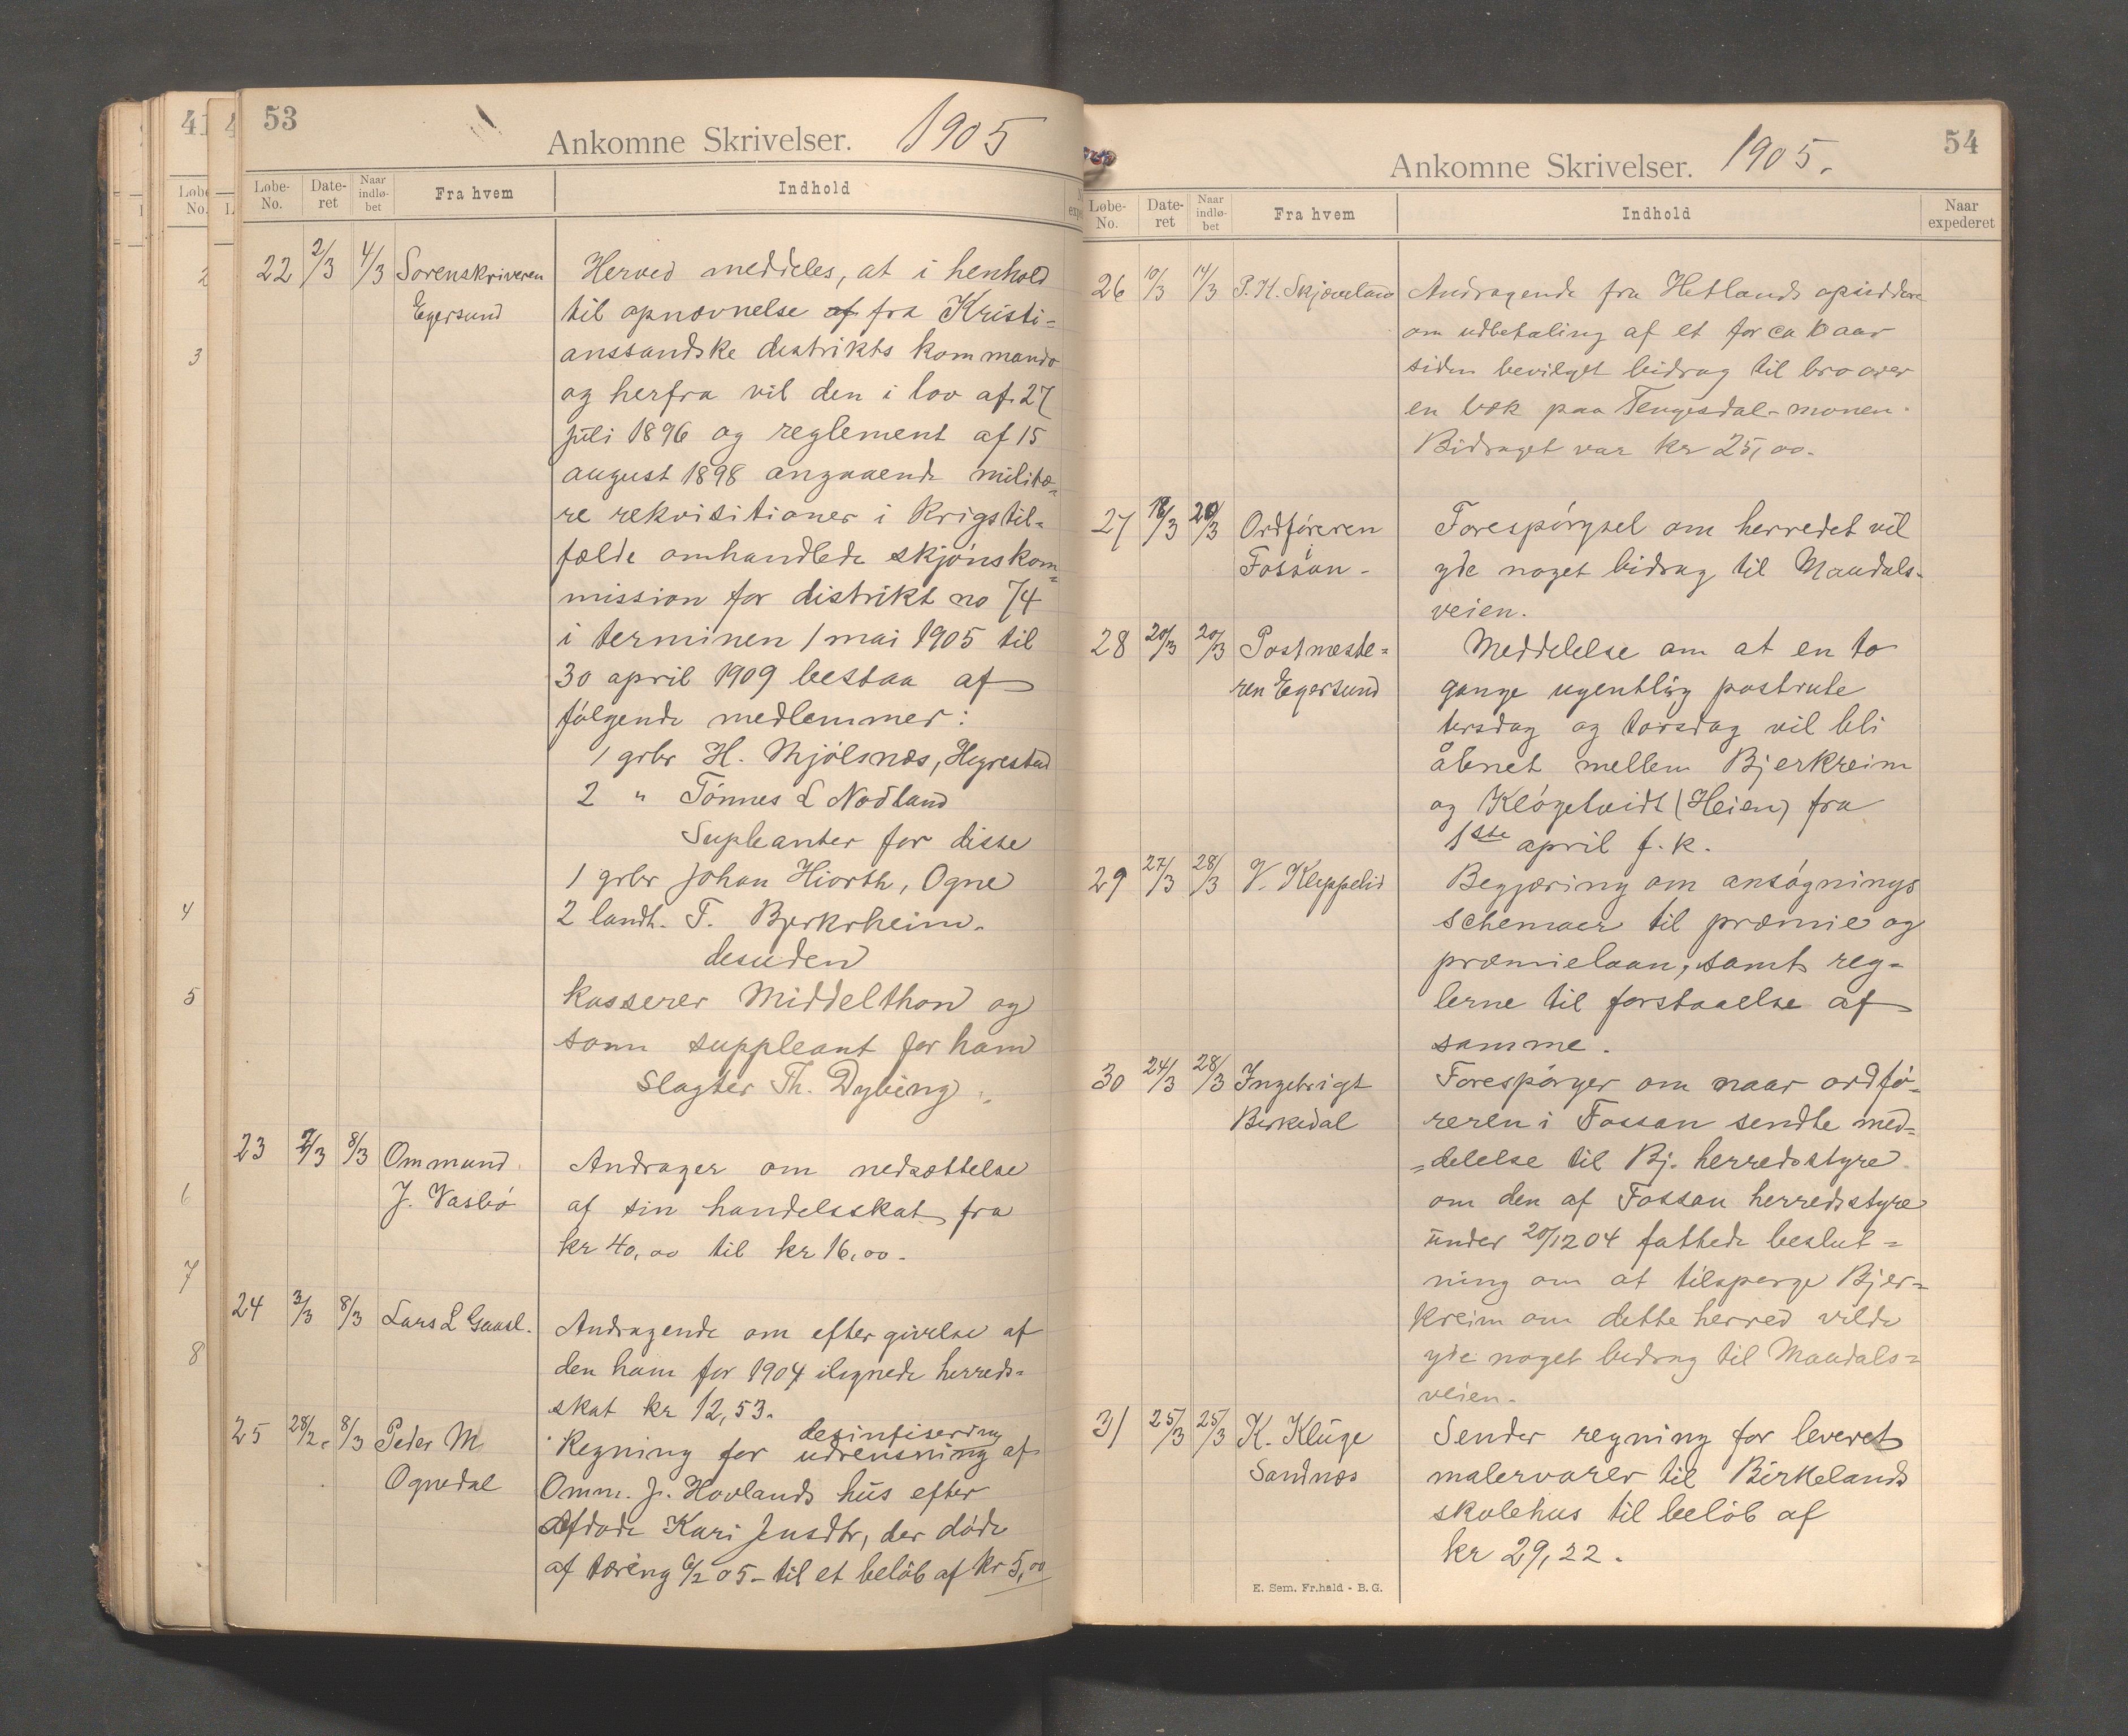 53
Ankomne Skrivelser. 1905
Løbe-No. Date-ret Naar indlø-bet Fra hvem Indhold
22 2/3 4/3 Sorenskriveren Egersund
Herved meddeles, at i henhold
til opnævnelse af fra Kristi-
anssandske distrikts kommando
og herfra vil den i lov af 27
juli 1896 og reglement af 15
august 1898 angaaende militæ-
re rekvisitioner i Krigstil-
fælde omhandlede skjønskom-
mission for distrikt no 74
i terminen 1 mai 1905 til
30 april 1909 bestaa af
følgende medlemmer:
1 grbr H. Mjølsnæs, Hegrestad
2 " Tønnes L Nodland
Supleanter for disse
1 grbr Johan Hiorth, Ogne
2 landh. T. Bjerkrheim.
desuden
kasserer Middelthon og
som suppleant for ham
Slagter Th. Dybing.
23 7/3 8/3 Ommund J. Vasbø
Andrager om nedsættelse
af sin handelsskat fra
kr 40,00 til kr 16,00.
24 3/3 8/3 Lars L Gaasl.
Andragende om eftergivelse af
den ham for 1904 ilignede herreds-
skat kr 12,53.
25 28/2. 8/3 Peder M Ognedal
desinfisering
Regning for udrensning af
Omm. J. Hovlands hus efter
afdøde Kari Jensdtr, der døde
af tæring 6/2 05 - til et beløb af kr 5,00
54
Ankomne Skrivelser. 1905.
Løbe-No. Date-ret Naar indlø-bet Fra hvem Indhold Naar expederet
26 10/3 14/3 P. H. Skjæveland
Andragende fra Hetlands opsiddere
om udbetaling af et for ca 10 aar
siden bevilget bidrag til bro over
en bæk paa Tengesdal-monen.
Bidraget var kr 25,00.
27 18/3 20/3 Ordføreren i Fossan -
Forespørgsel om herredet vil
yde noget bidrag til Maudals-
veien.
28 20/3 20/3 Postmeste-
ren Egersund
Meddelelse om at en to
gange ugentlig postrute
tirsdag og torsdag vil bli
åbnet mellem Bjerkreim
og Kløgetvidt (Heien) fra
1ste april f. k.
29 27/3 28/3 V. Kleppelid
Begjæring om ansøgnings
schemaer til præmie og
præmielaan, samt reg-
lerne til forstaaelse af
samme.
30 24/3 28/3 Ingebrigt Birkedal
Forespørger om naar ordfø-
reren i Fossan sendte med-
=delelse til Bj. herredsstyre
om den af Fossan herredsstyre
under 20/12 04 fattede beslut-
ning om at tilspørge Bjer-
kreim om dette herred vilde
yde noget bidrag til Maudals-
veien.
31 25/3 25/3 K. Kluge Sandnæs
Sender regning for leveret
malervarer til Birkelands
skolehus til beløb af
kr 29,22.
E. Sem. Fr.hald - B. G.